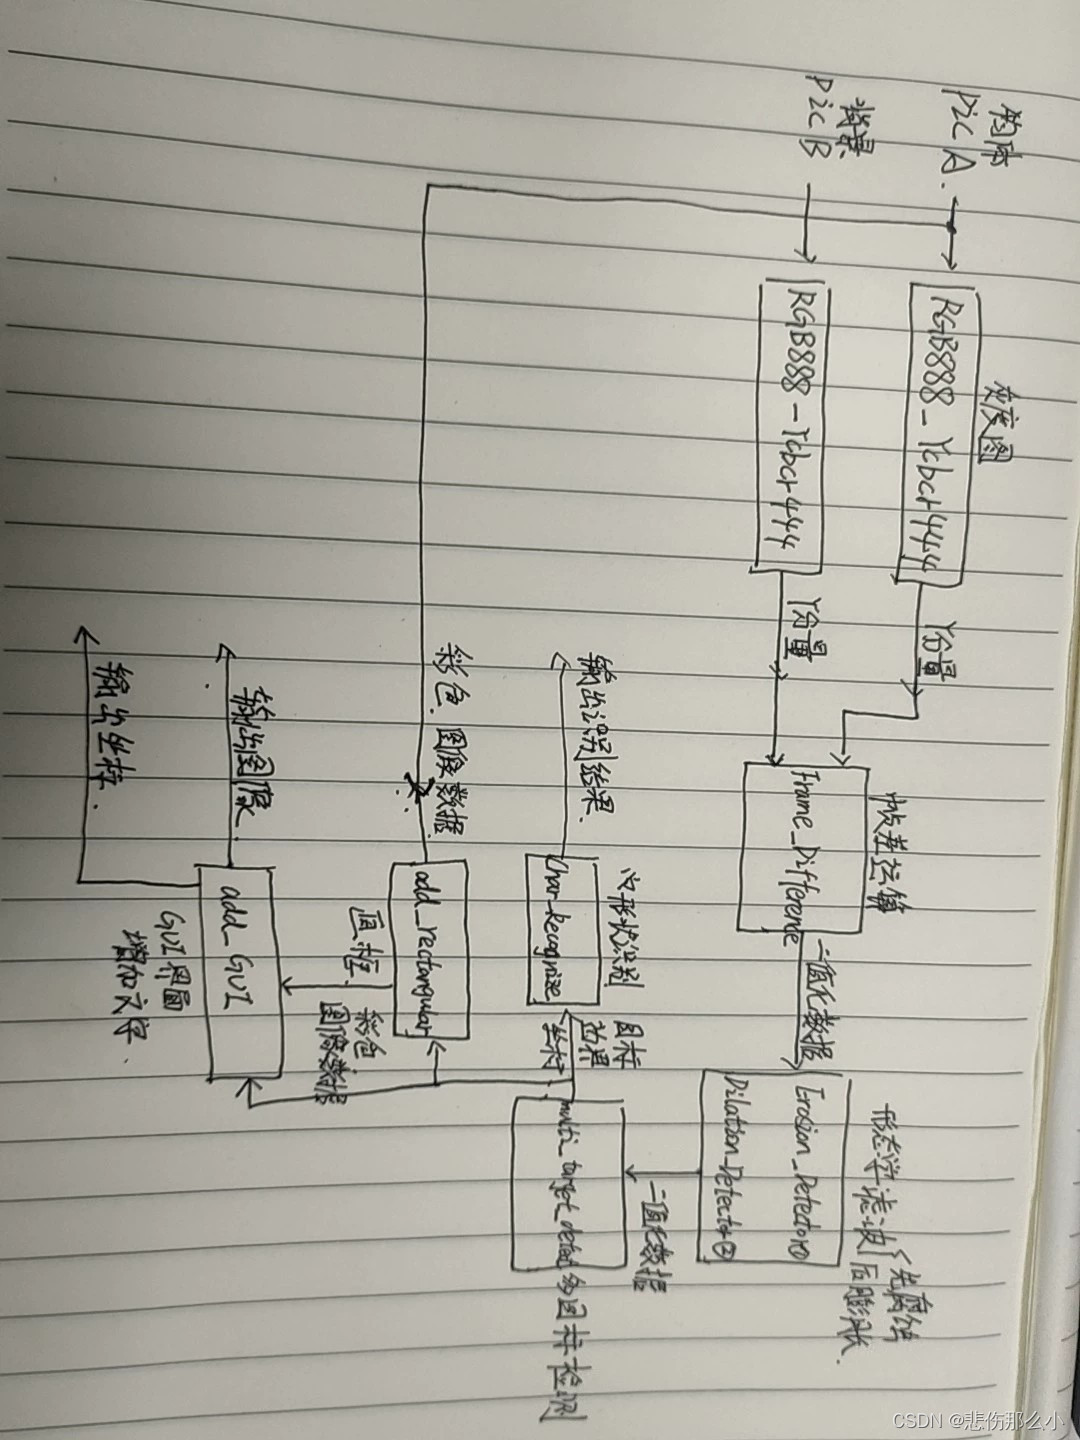 物体
Pic A.
背景
Pic B
灰度图
RGB888-Ycbcr444
RGB888-Ycbcr444
Y分量
Y分量
帧差运算
Frame_Difference
二值化数据
形态学滤波{先腐蚀
后膨胀.
Erosion_Detector①
Dilation_Detector②
二值化数据
multi_target_detect
多目标检测
目标
边界
坐标
形状识别
Char_Recognize
输出识别结果.
彩色.图像数据.
add_rectangular
画框.
彩色
图像数据
add_GUI
GUI界面
增加文字.
输出图像.
输出坐标.
CSDN @悲伤那么小